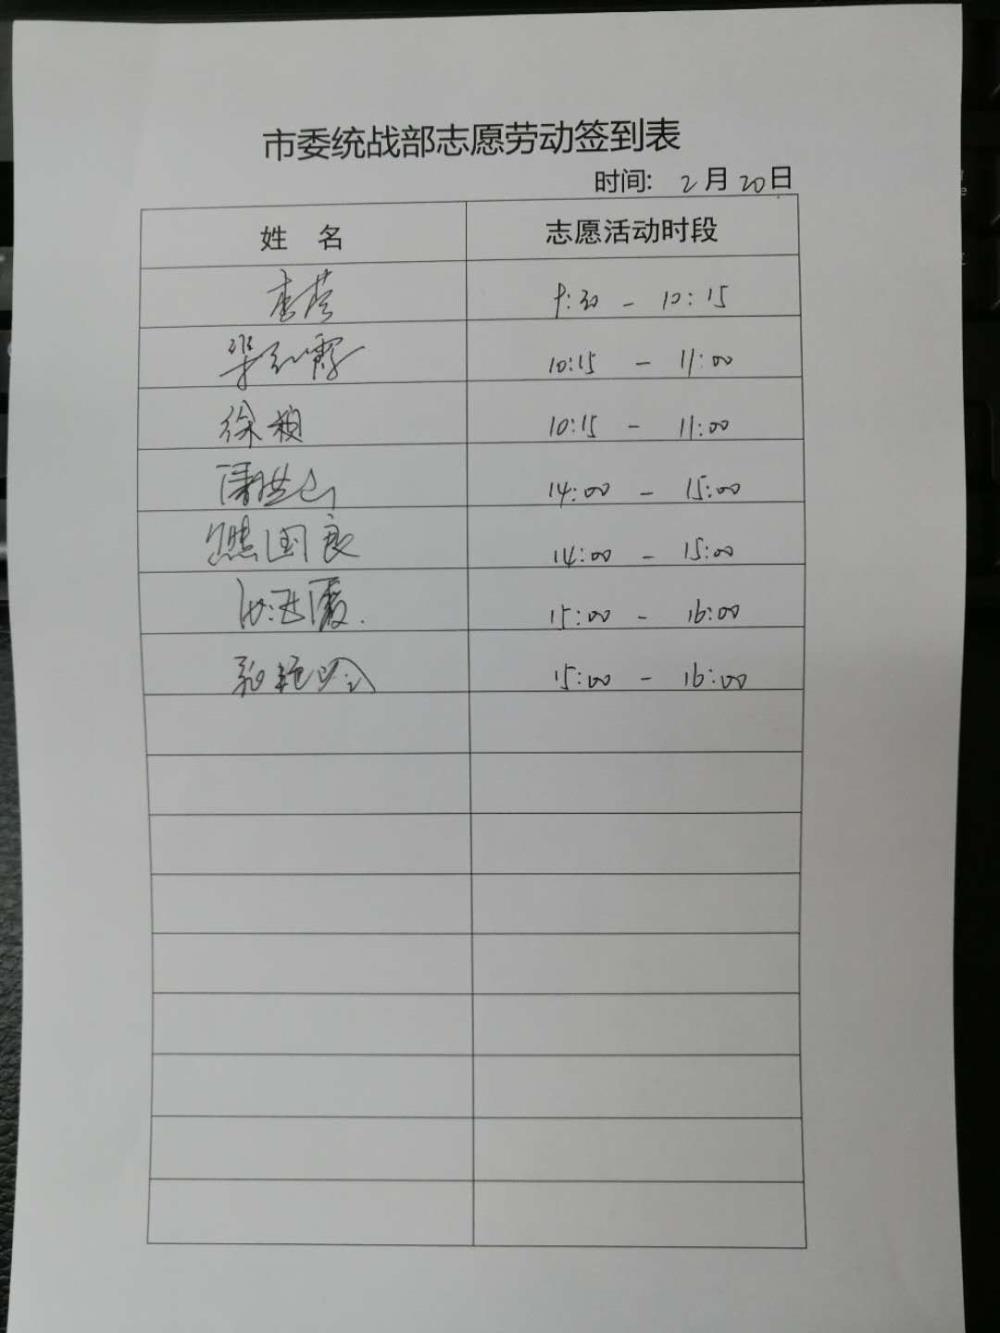 市委统战部志愿劳动签到表
时间: 2月20日
姓 名 志愿活动时段
9:30 - 10:15
10:15 - 11:00
徐颖 10:15 - 11:00
14:00 - 15:00
熊国良 14:00 - 15:00
15:00 - 16:00
15:00 - 16:00